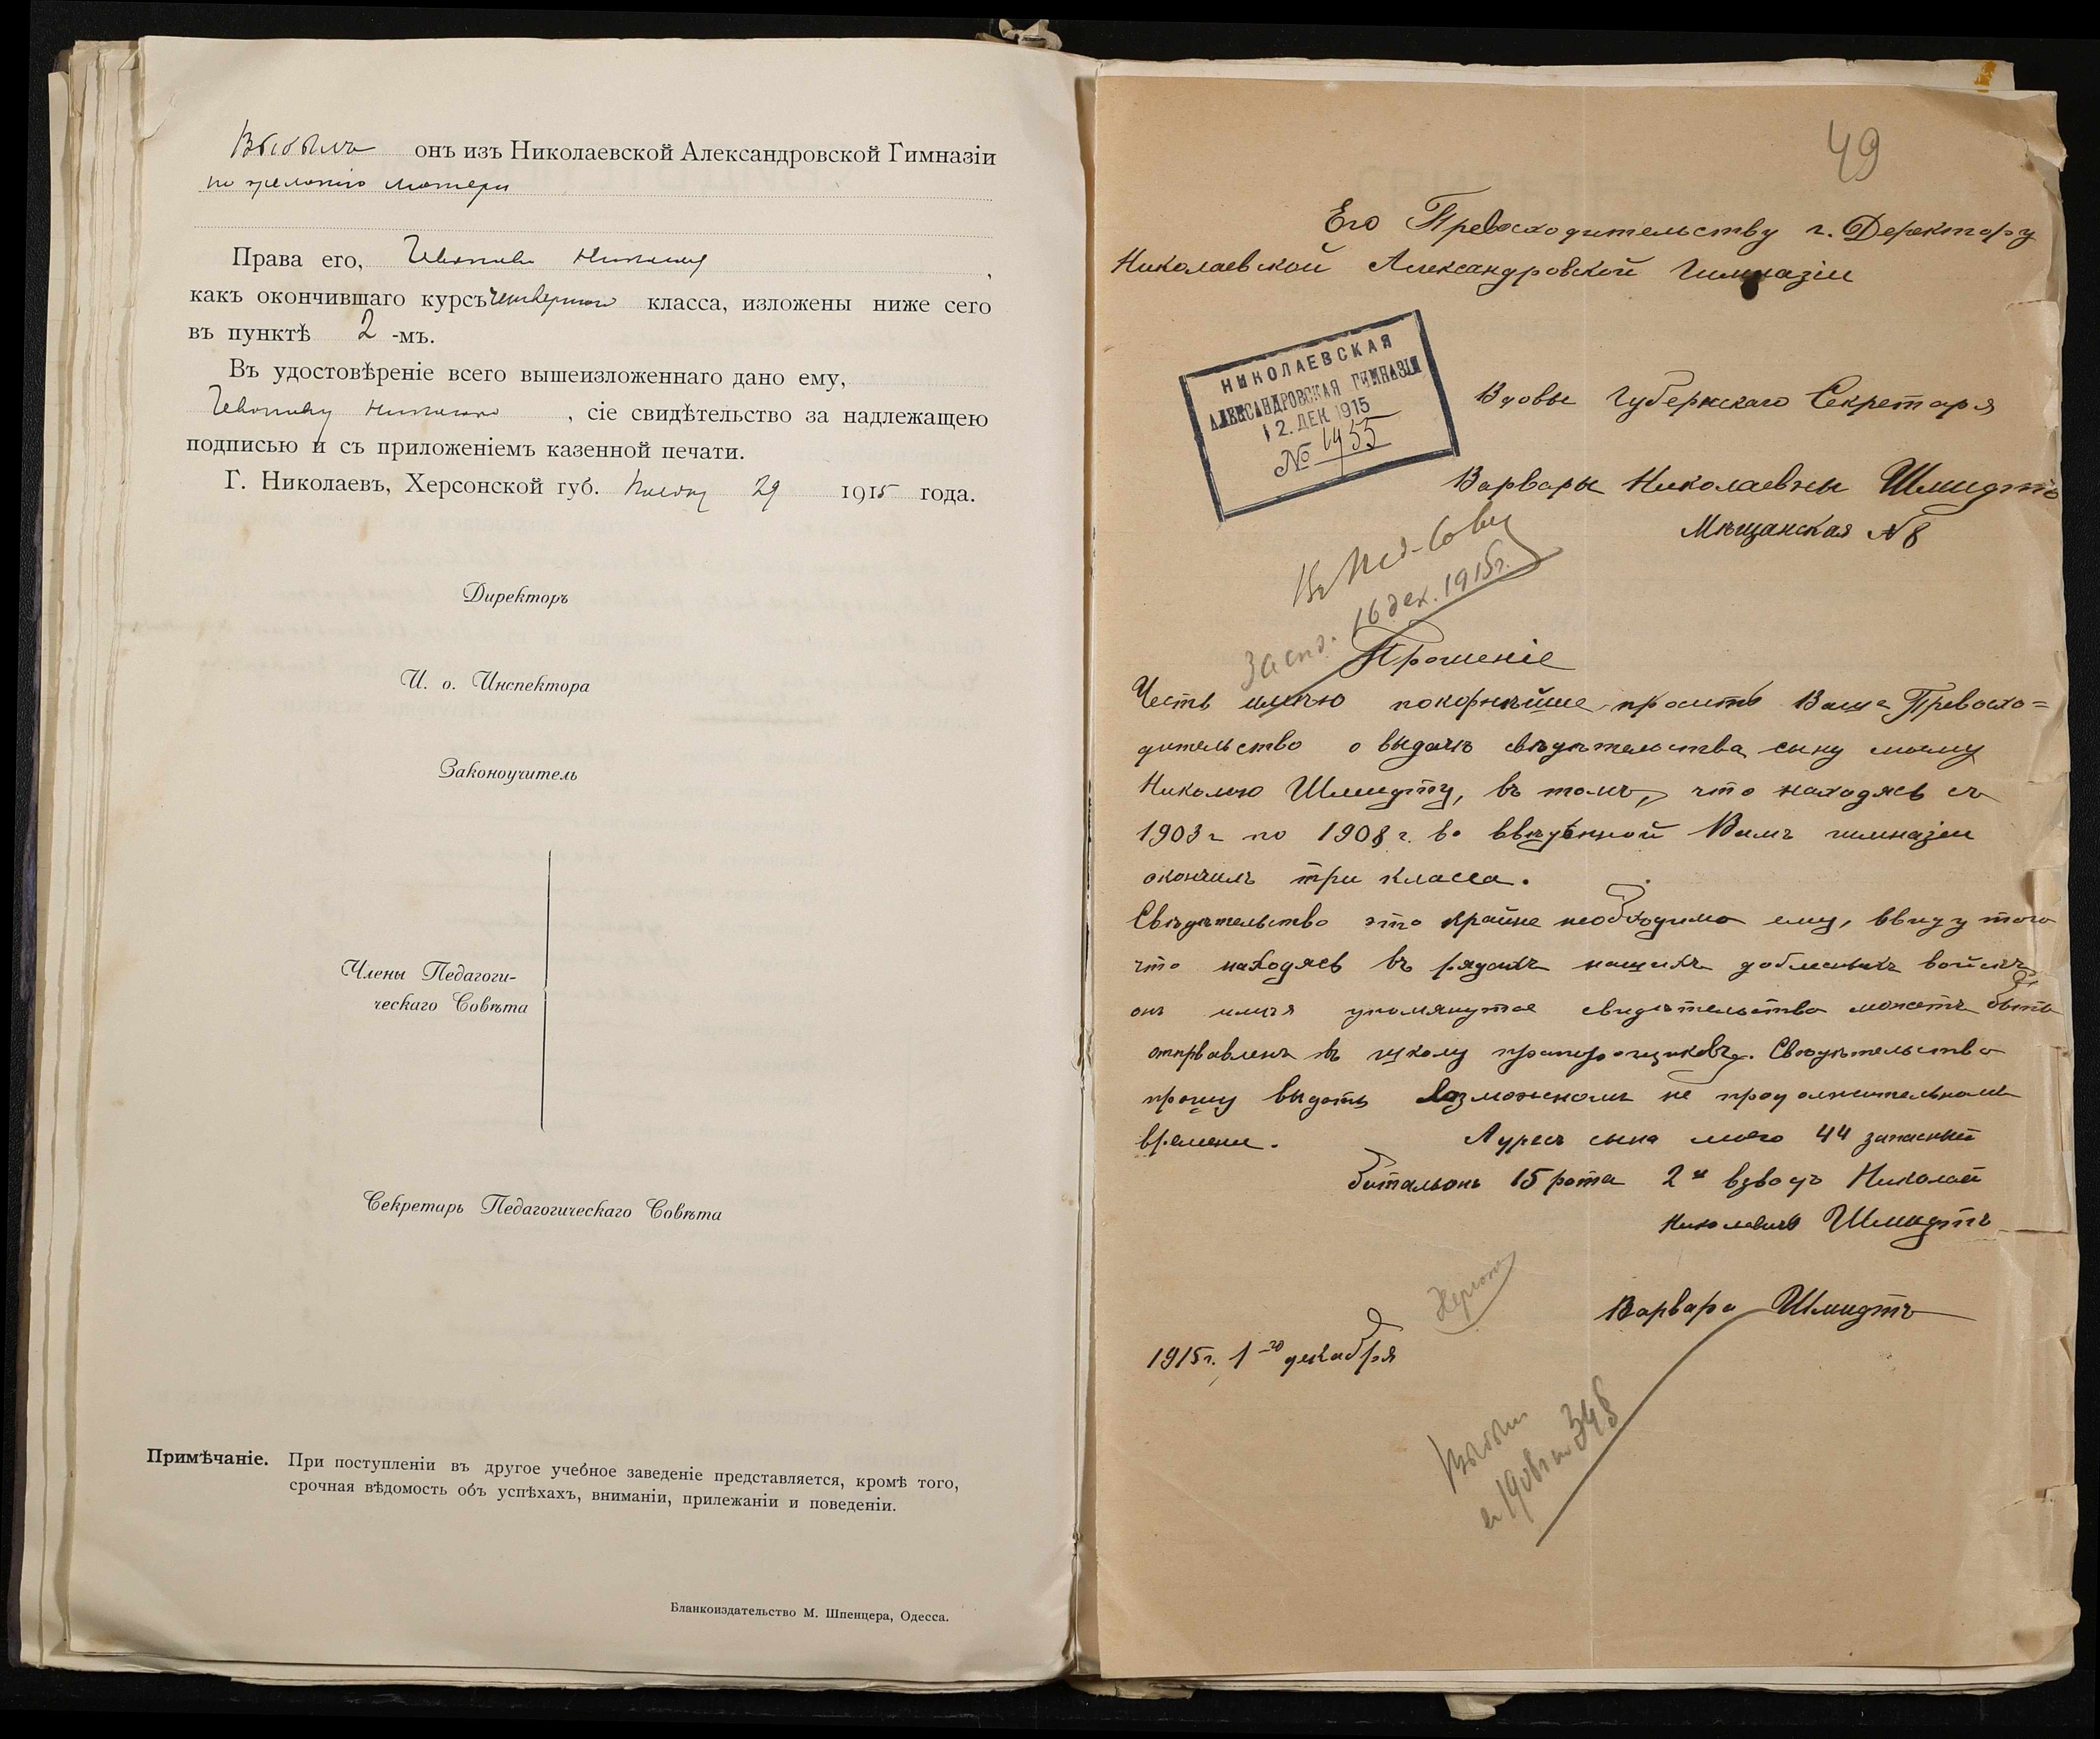 Выбылъ онъ изъ Николаевской Александровской Гимназіи
по желанію матери
Права его,
какъ окончившаго курсъ четвертаго класса, изложены ниже сего
въ пунктѣ 2 -мъ.
Въ удостовѣреніе всего вышеизложеннаго дано ему,
, сіе свидѣтельство за надлежащею
подписью и съ приложеніемъ казенной печати.
Г. Николаевъ, Херсонской губ. 29 1915 года.
Директоръ
И. о. Инспектора
Законоучитель
Члены Педагоги-
ческаго Совѣта
Секретарь Педагогическаго Совѣта
Примѣчаніе. При поступленіи въ другое учебное заведеніе представляется, кромѣ того,
срочная вѣдомость объ успѣхахъ, вниманіи, прилежаніи и поведеніи.
Бланкоиздательство М. Шпенцера, Одесса.
49
Его Превосходительству г. Деректору
Николаевской Александровской Гимназіи
НИКОЛАЕВСКАЯ
АЛЕКСАНДРОВСКАЯ ГИМНАЗІЯ
12. ДЕК 1915
№ 1955
Вдовы Губернскаго Секретаря
Варвары Николаевны Шмидтъ
Мѣщанская N 8
Въ Пед. Совѣ
Засѣд. 16 дек. 1915г.
Прошеніе
Честь имѣю покорнѣйше просить Ваше Превосхо=
дительство о выдачѣ свѣдѣтельства сыну моему
Николаю Шмидту, въ томъ, что находясь съ
1903 г по 1908 г. во ввѣренной Вамъ гимназіи
окончилъ три класса.
Свѣдѣтельство это крайне необходимо ему, ввиду того
что находясь въ рядахъ нашихъ доблестныхъ войскъ
онъ имѣя упомянутое свидѣтельство можетъ быть
отправленъ въ школу прапорщиковъ. Свѣдѣтельство
прошу выдать возможномъ не продолжительномъ
времени. Адресъ сына моего 44 запасный
баталіонъ 15 рота 2й взводъ Николай
Николаевичъ Шмидтъ
Херсонъ
Варвара Шмидтъ
1915г. 1го декабря
Выбылъ
348